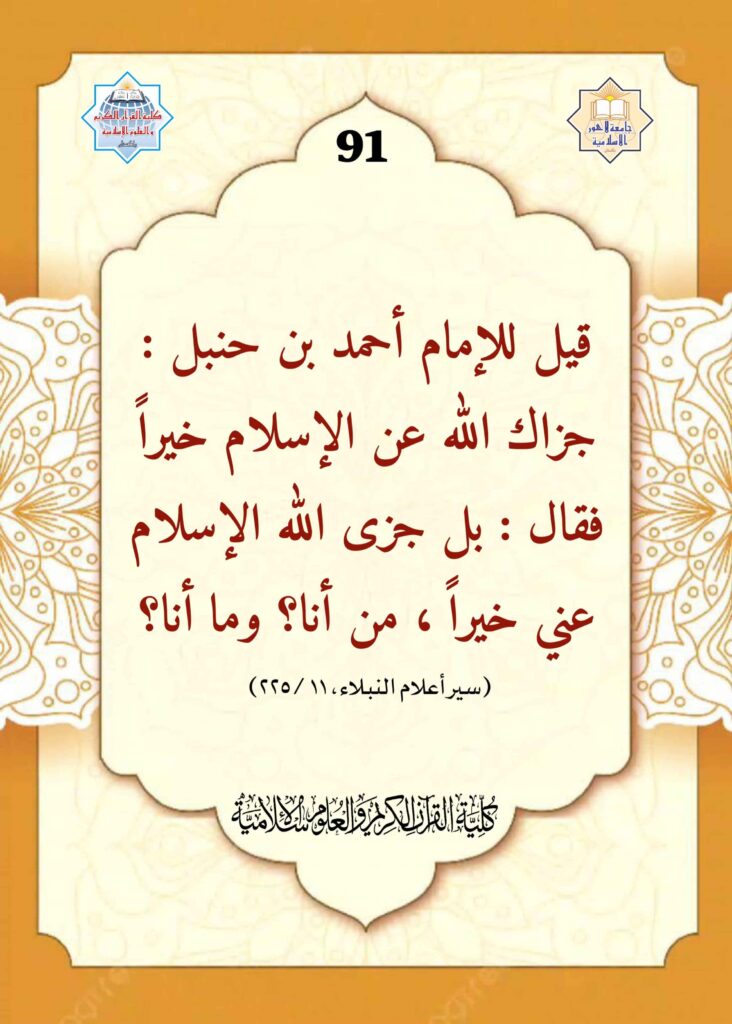 كلية القرآن الكريم
والعلوم الإسلامية
باكستان
جامعة لاهور
الاسلامية
باكستان
91
قيل للإمام أحمد بن حنبل :
جزاك الله عن الإسلام خيراً
فقال : بل جزى الله الإسلام
عني خيراً ، من أنا؟ وما أنا؟
(سير أعلام النبلاء، ١١ / ٢٢٥)
كُلِّيَّة القُرآن الكَرِيم وَالعُلُوم الإِسْلَامِيَّة